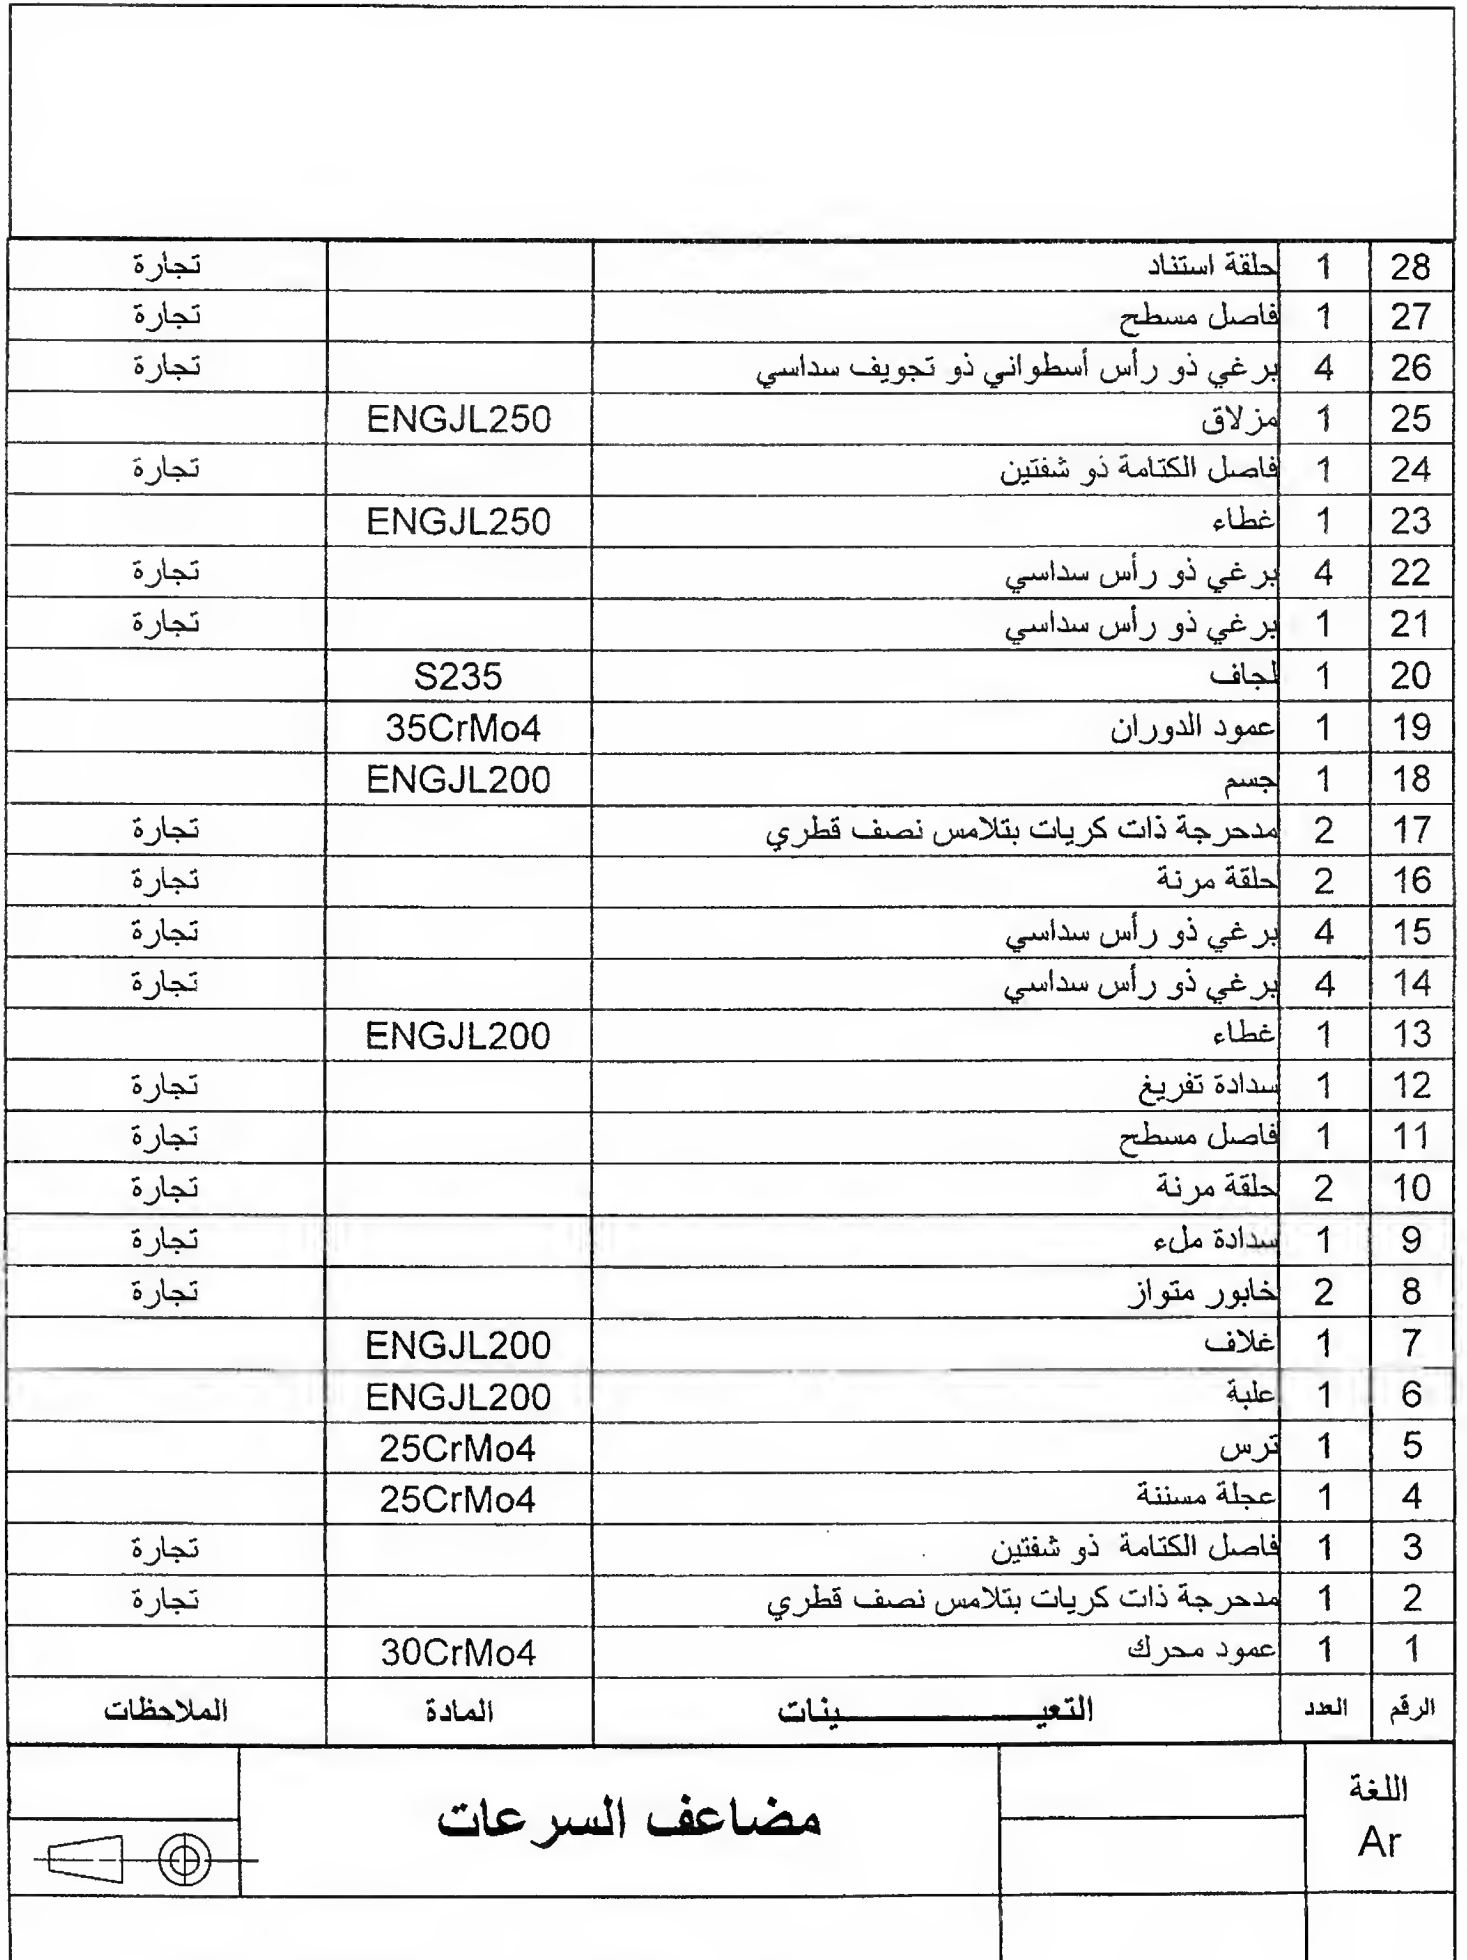 28 1 حلقة استناد تجارة
27 1 فاصل مسطح تجارة
26 4 برغي ذو رأس أسطواني ذو تجويف سداسي تجارة
25 1 مزلاق ENGJL250
24 1 فاصل الكتامة ذو شفتين تجارة
23 1 غطاء ENGJL250
22 4 برغي ذو رأس سداسي تجارة
21 1 برغي ذو رأس سداسي تجارة
20 1 لجاف S235
19 1 عمود الدوران 35CrMo4
18 1 جسم ENGJL200
17 2 مدحرجة ذات كريات بتلامس نصف قطري تجارة
16 2 حلقة مرنة تجارة
15 4 برغي ذو رأس سداسي تجارة
14 4 برغي ذو رأس سداسي تجارة
13 1 غطاء ENGJL200
12 1 سدادة تفريغ تجارة
11 1 فاصل مسطح تجارة
10 2 حلقة مرنة تجارة
9 1 سدادة ملء تجارة
8 2 خابور متواز تجارة
7 1 غلاف ENGJL200
6 1 علبة ENGJL200
5 1 ترس 25CrMo4
4 1 عجلة مسننة 25CrMo4
3 1 فاصل الكتامة ذو شفتين تجارة
2 1 مدحرجة ذات كريات بتلامس نصف قطري تجارة
1 1 عمود محرك 30CrMo4
الرقم العدد التعيـــــــــينات المادة الملاحظات
اللغة
Ar
مضاعف السرعات